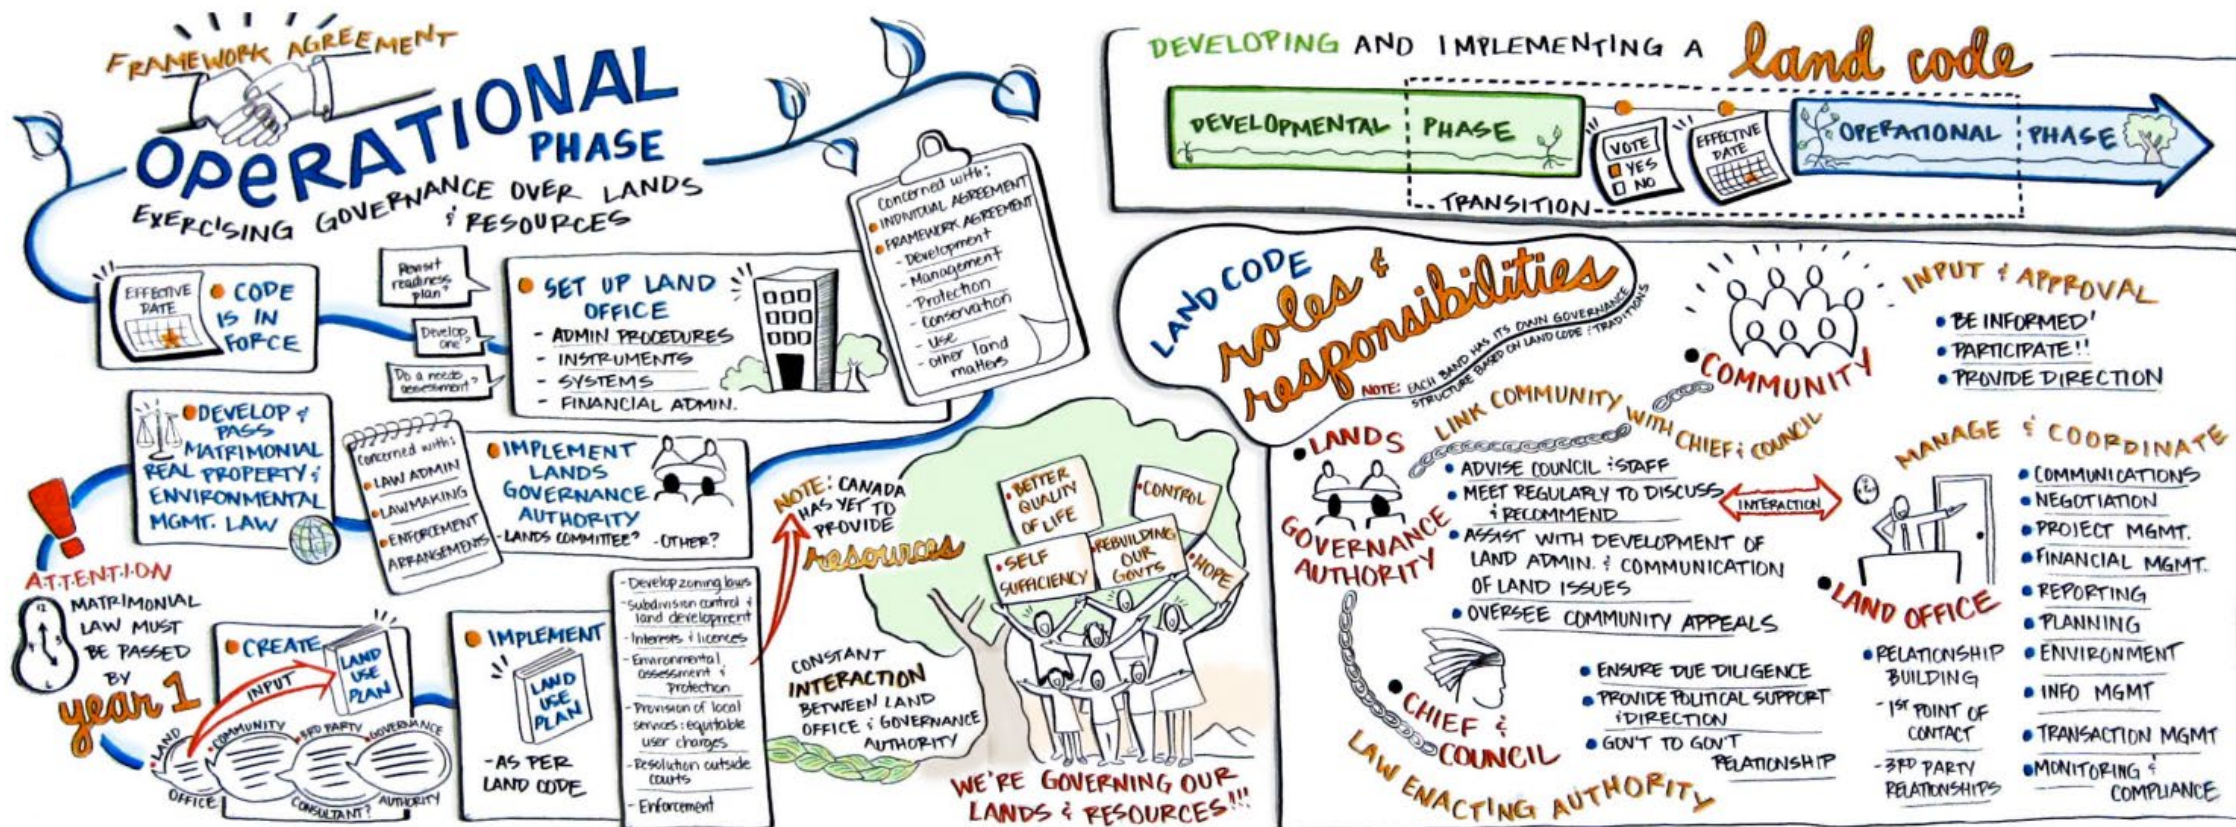 FRAMEWORK AGREEMENT
OPERATIONAL
PHASE
EXERCISING GOVERNANCE OVER LANDS
& RESOURCES
EFFECTIVE
DATE
CODE
IS IN
FORCE
Revisit
readiness
plan?
Develop
one?
Do a needs
assessment?
SET UP LAND
OFFICE
- ADMIN PROCEDURES
- INSTRUMENTS
- SYSTEMS
- FINANCIAL ADMIN.
Concerned with:
INDIVIDUAL AGREEMENT
FRAMEWORK AGREEMENT
- Development
- Management
- Protection
- Conservation
- Use
- other land
matters
DEVELOP &
PASS
MATRIMONIAL
REAL PROPERTY &
ENVIRONMENTAL
MGMT. LAW
Concerned with:
LAW ADMIN
LAWMAKING
ENFORCEMENT
ARRANGEMENTS
IMPLEMENT
LANDS
GOVERNANCE
AUTHORITY
- LANDS COMMITTEE? - OTHER?
ATTENTION
MATRIMONIAL
LAW MUST
BE PASSED
BY
year 1
CREATE
LAND
USE
PLAN
INPUT
LAND
OFFICE
COMMUNITY
3RD PARTY
CONSULTANT?
GOVERNANCE
AUTHORITY
IMPLEMENT
LAND
USE
PLAN
- AS PER
LAND CODE
- Develop zoning laws
- Subdivision control &
land development
- Interests & licences
- Environmental
assessment &
protection
- Provision of local
services & equitable
user charges
- Resolution outside
courts
- Enforcement
NOTE: CANADA
HAS YET TO
PROVIDE
resources
CONSTANT
INTERACTION
BETWEEN LAND
OFFICE & GOVERNANCE
AUTHORITY
BETTER
QUALITY
OF LIFE
CONTROL
SELF
SUFFICIENCY
REBUILDING
OUR
GOVTS
HOPE
WE'RE GOVERNING OUR
LANDS & RESOURCES!!!
DEVELOPING AND IMPLEMENTING A land code
DEVELOPMENTAL PHASE
VOTE
YES
NO
EFFECTIVE
DATE
OPERATIONAL PHASE
TRANSITION
LAND CODE
roles &
responsibilities
NOTE: EACH BAND HAS ITS OWN GOVERNANCE
STRUCTURE BASED ON LAND CODE & TRADITIONS
COMMUNITY
INPUT & APPROVAL
BE INFORMED!
PARTICIPATE!!
PROVIDE DIRECTION
LINK COMMUNITY WITH CHIEF & COUNCIL
LANDS
GOVERNANCE
AUTHORITY
ADVISE COUNCIL & STAFF
MEET REGULARLY TO DISCUSS
& RECOMMEND
ASSIST WITH DEVELOPMENT OF
LAND ADMIN. & COMMUNICATION
OF LAND ISSUES
OVERSEE COMMUNITY APPEALS
INTERACTION
CHIEF &
COUNCIL
ENSURE DUE DILIGENCE
PROVIDE POLITICAL SUPPORT
& DIRECTION
GOV'T TO GOV'T
RELATIONSHIP
LAW ENACTING AUTHORITY
MANAGE & COORDINATE
LAND OFFICE
RELATIONSHIP
BUILDING
- 1ST POINT OF
CONTACT
- 3RD PARTY
RELATIONSHIPS
COMMUNICATIONS
NEGOTIATION
PROJECT MGMT.
FINANCIAL MGMT.
REPORTING
PLANNING
ENVIRONMENT
INFO MGMT
TRANSACTION MGMT
MONITORING &
COMPLIANCE